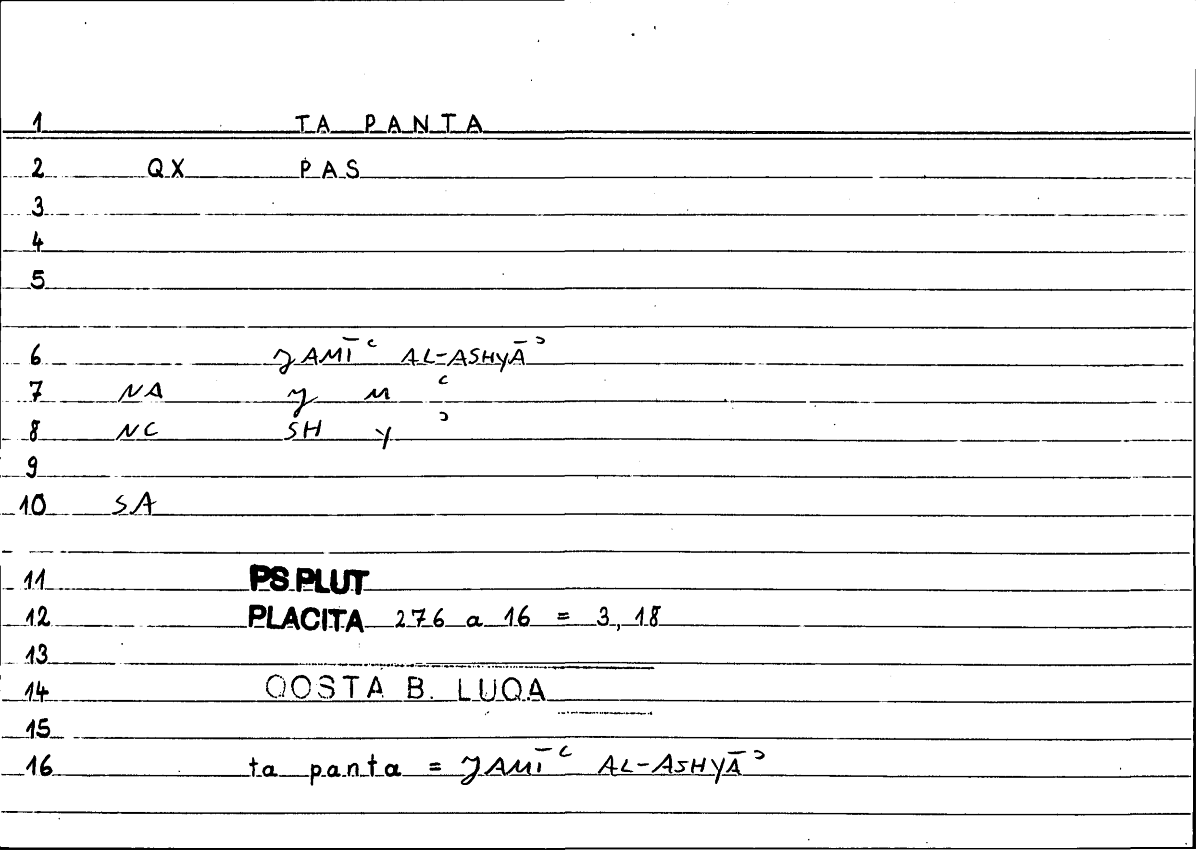 1 TA PANTA
2 QX PAS
3
4
5
6 JAMĪʿ AL-ASHYĀʾ
7 NA J M ʿ
8 NC SH Y ʾ
9
10 SA
11 PS PLUT
12 PLACITA 276 a 16 = 3, 18
13
14 QOSTA B. LUQA
15
16 ta panta = JAMĪʿ AL-ASHYĀʾ